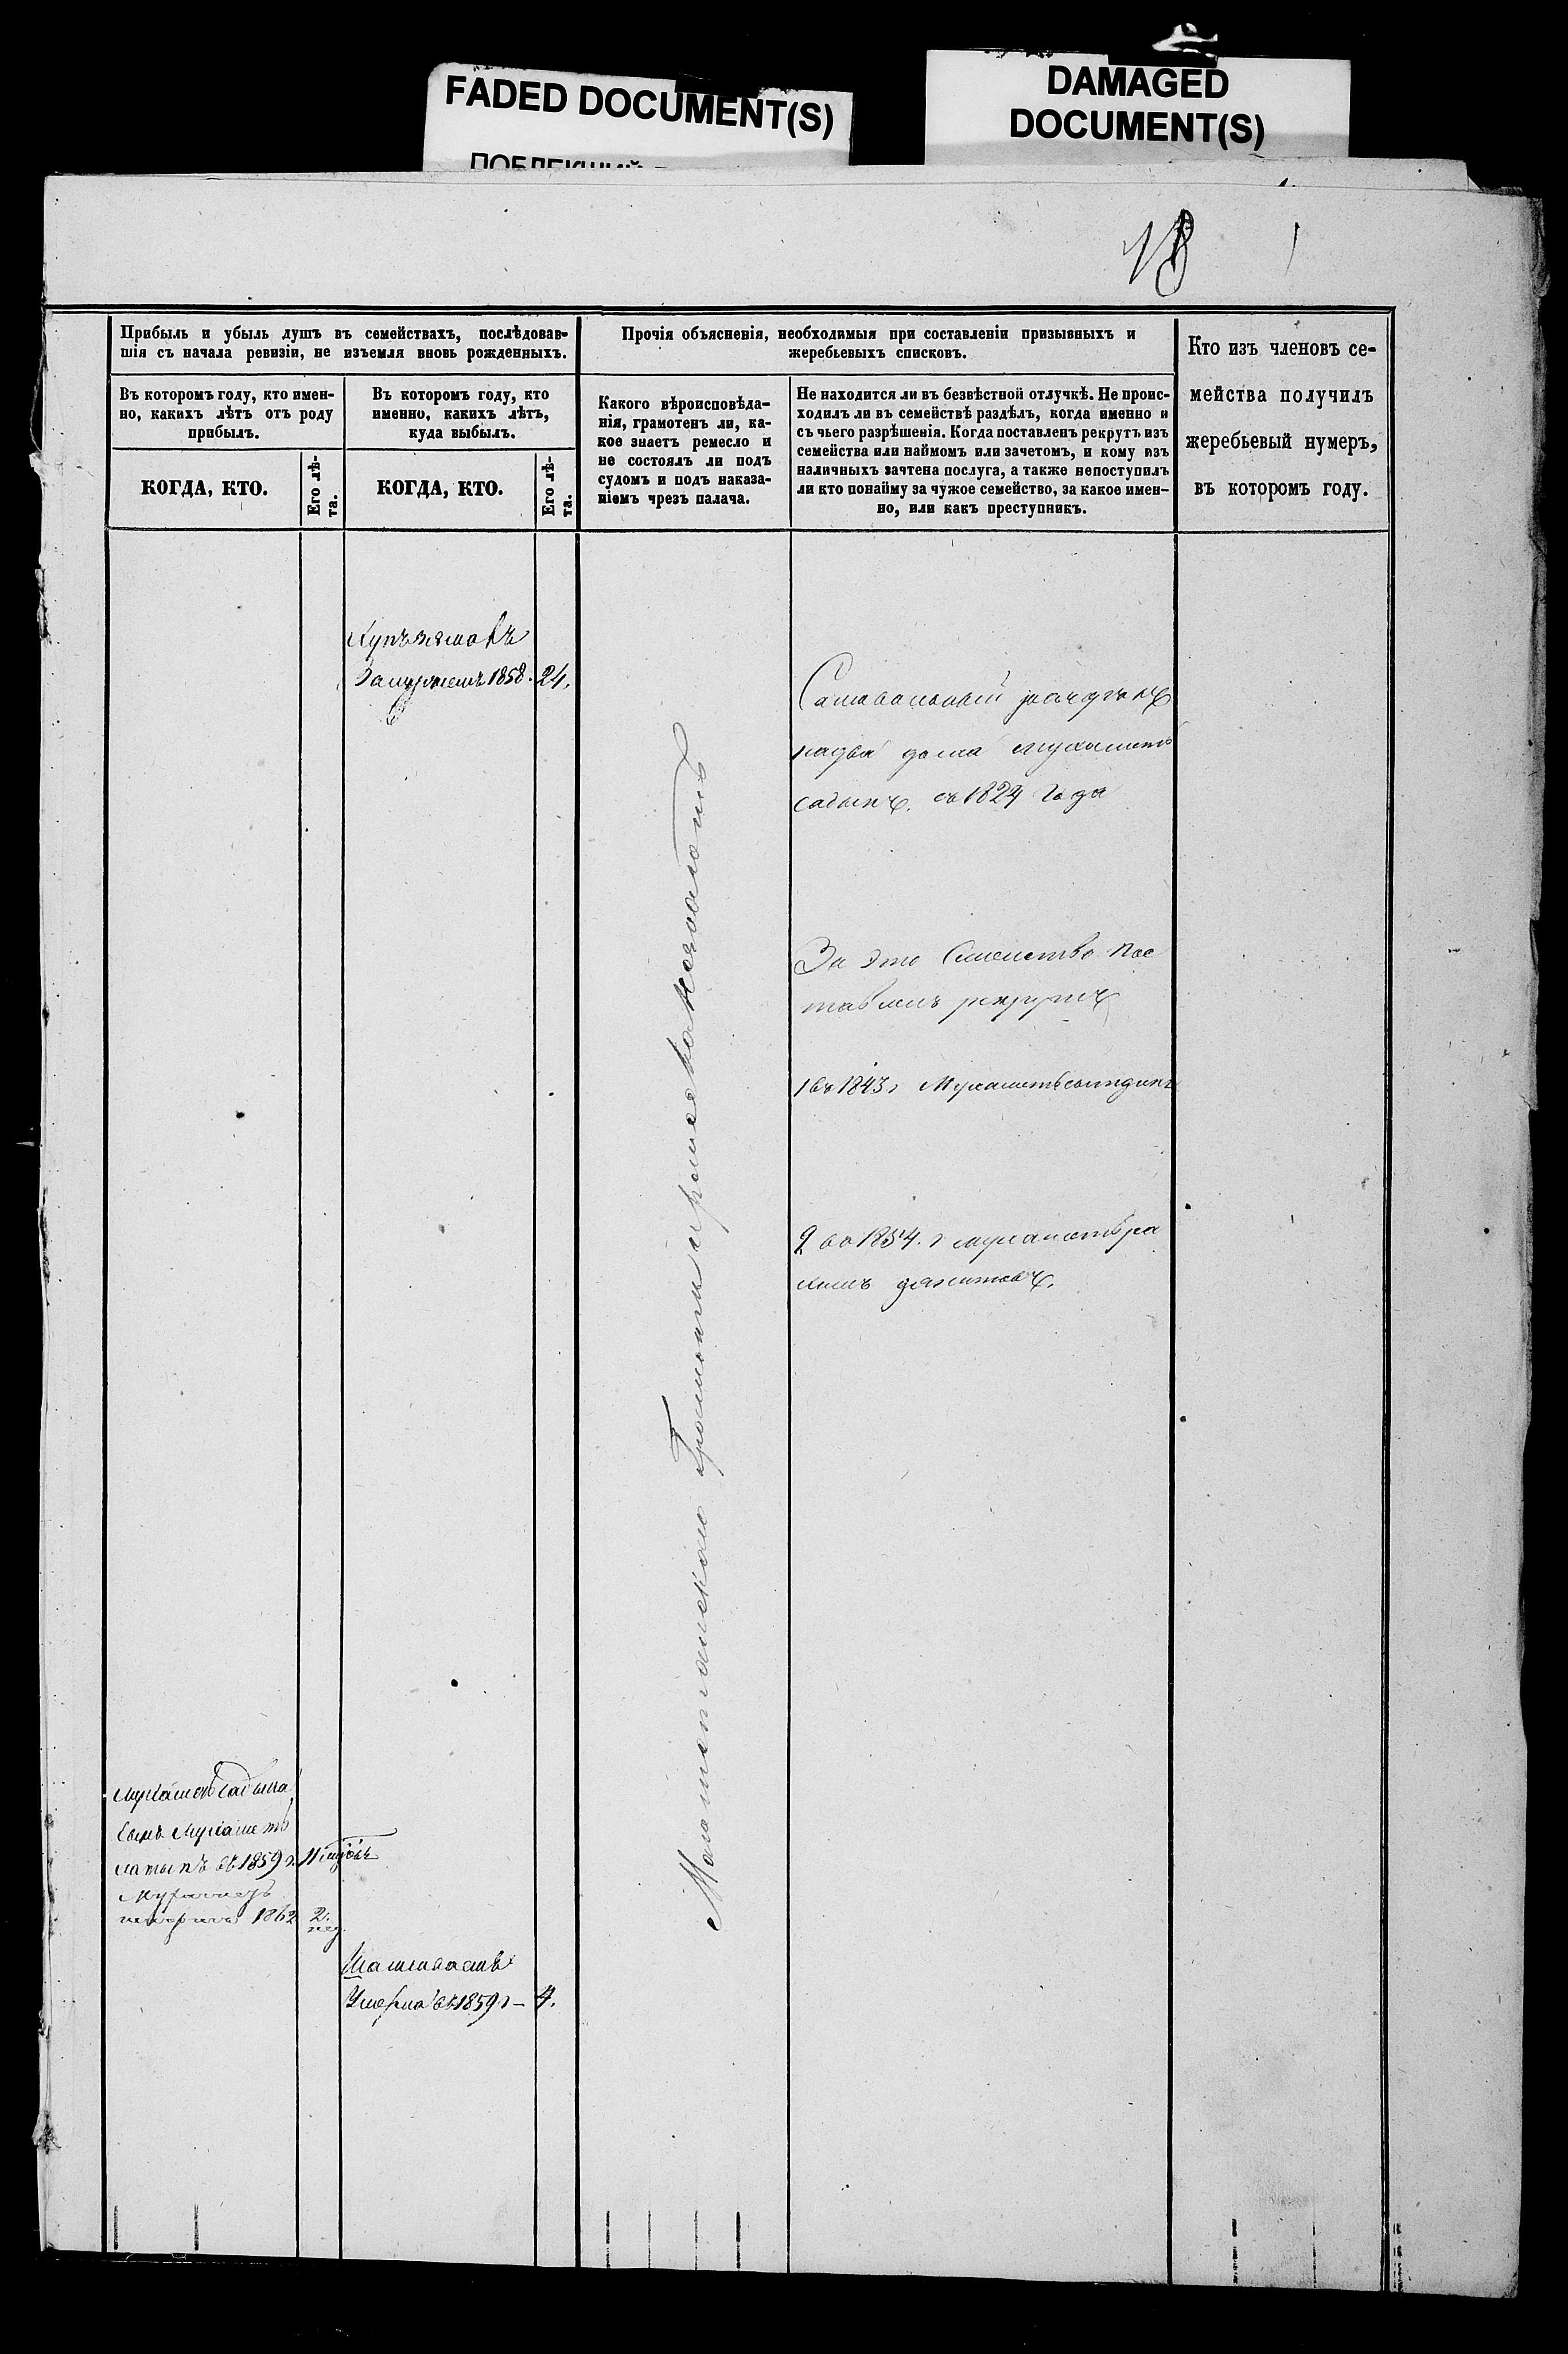 FADED DOCUMENT(S)
DAMAGED
DOCUMENT(S)
18
Прибыль и убыль душъ въ семействахъ, послѣдовав-
шія съ начала ревизіи, не изъемля вновь рожденныхъ.
Въ которомъ году, кто имен-
но, какихъ лѣтъ отъ роду
прибылъ.
КОГДА, КТО.
Его лѣ-
та.
Въ которомъ году, кто
именно, какихъ лѣтъ,
куда выбылъ.
КОГДА, КТО.
Его лѣ-
та.
Прочія объясненія, необходимыя при составленіи призывныхъ и
жеребьевыхъ списковъ.
Какого вѣроисповѣда-
нія, грамотенъ ли, ка-
кое знаетъ ремесло и
не состоялъ ли подъ
судомъ и подъ наказа-
ніемъ чрезъ палача.
Не находится ли въ безвѣстной отлучкѣ. Не проис-
ходилъ ли въ семействѣ раздѣлъ, когда именно и
съ чьего разрѣшенія. Когда поставленъ рекрутъ изъ
семейства или наймомъ или зачетомъ, и кому изъ
наличныхъ зачтена послуга, а также непоступилъ
ли кто понайму за чужое семейство, за какое имен-
но, или какъ преступникъ.
Кто изъ членовъ се-
мейства получилъ
жеребьевый нумеръ,
въ которомъ году.
Замужемъ 1858. 24.
надва дома мухаметъ
садыкъ. съ 1824 года
За это Семейство пос
тавленъ рекрутъ
1 въ 1843 г Мухаметь
2 во 1854. г мухаметьра
химъ
Магометанской Грамоты и ремесла
Мухаметь садыка
сынъ Мухаметь
латыпъ въ 1859 г. 11
1862 2. нед.
Умерла въ 1859 г – 4.